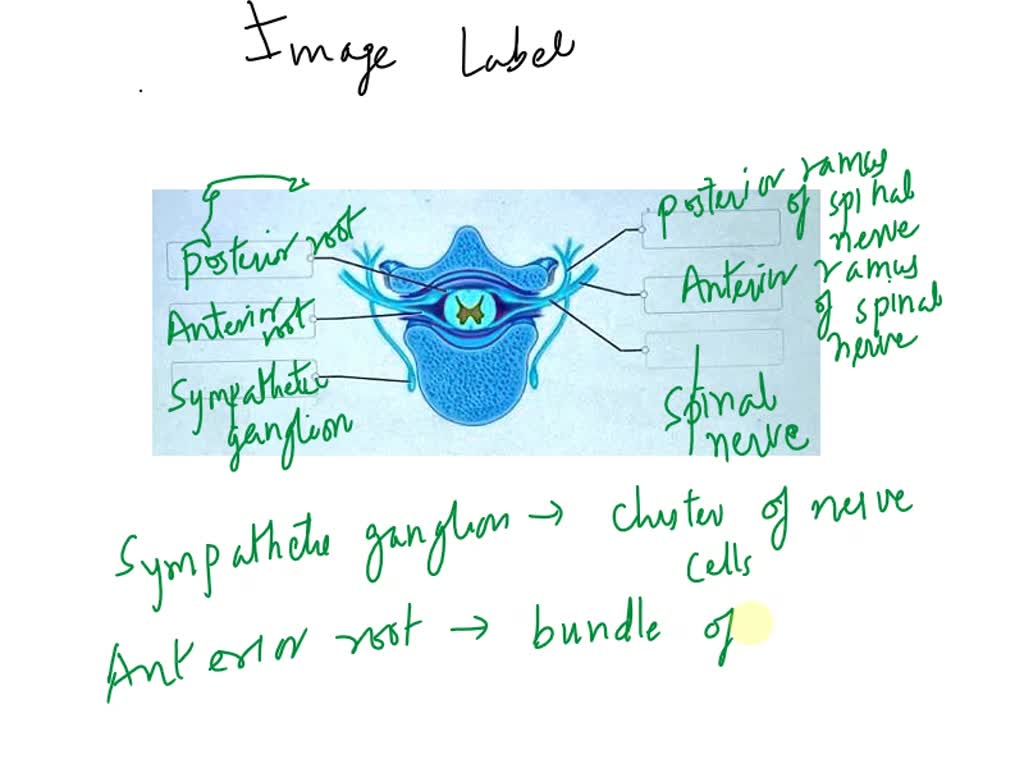 Image Label
Posterior root
Anterior root
Sympathetic ganglion
Posterior ramus of spinal nerve
Anterior ramus of spinal nerve
Spinal nerve
Sympathetic ganglion → cluster of nerve
cells
Anterior root → bundle of